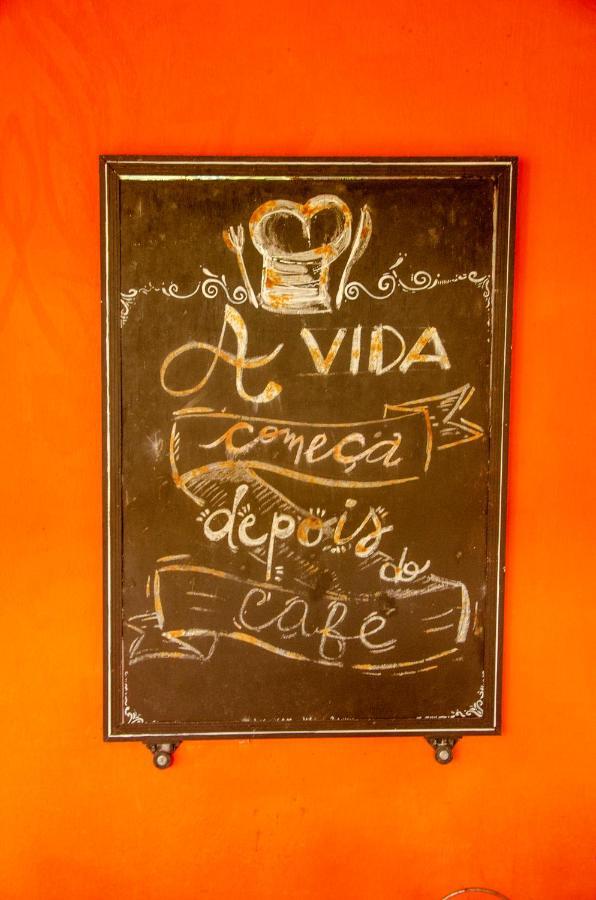 A VIDA
começa
depois
do
café